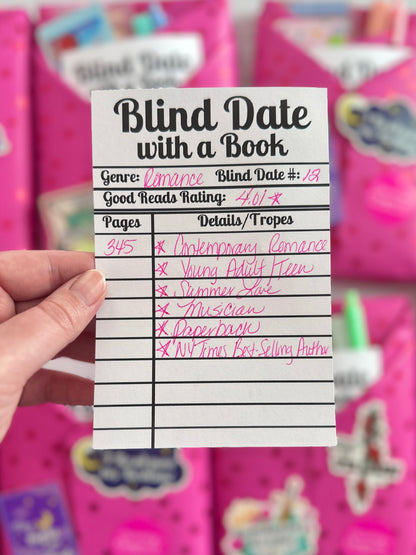 Blind Date
with a Book
Genre: Romance Blind Date #: 12
Good Reads Rating: 4.01 ☆
Pages Details/Tropes
345 ☆ Contemporary Romance
☆ Young Adult/Teen
☆ Summer Love
☆ Musician
☆ Paperback
☆ NY Times Best-Selling Author
Blind Date
with a Book